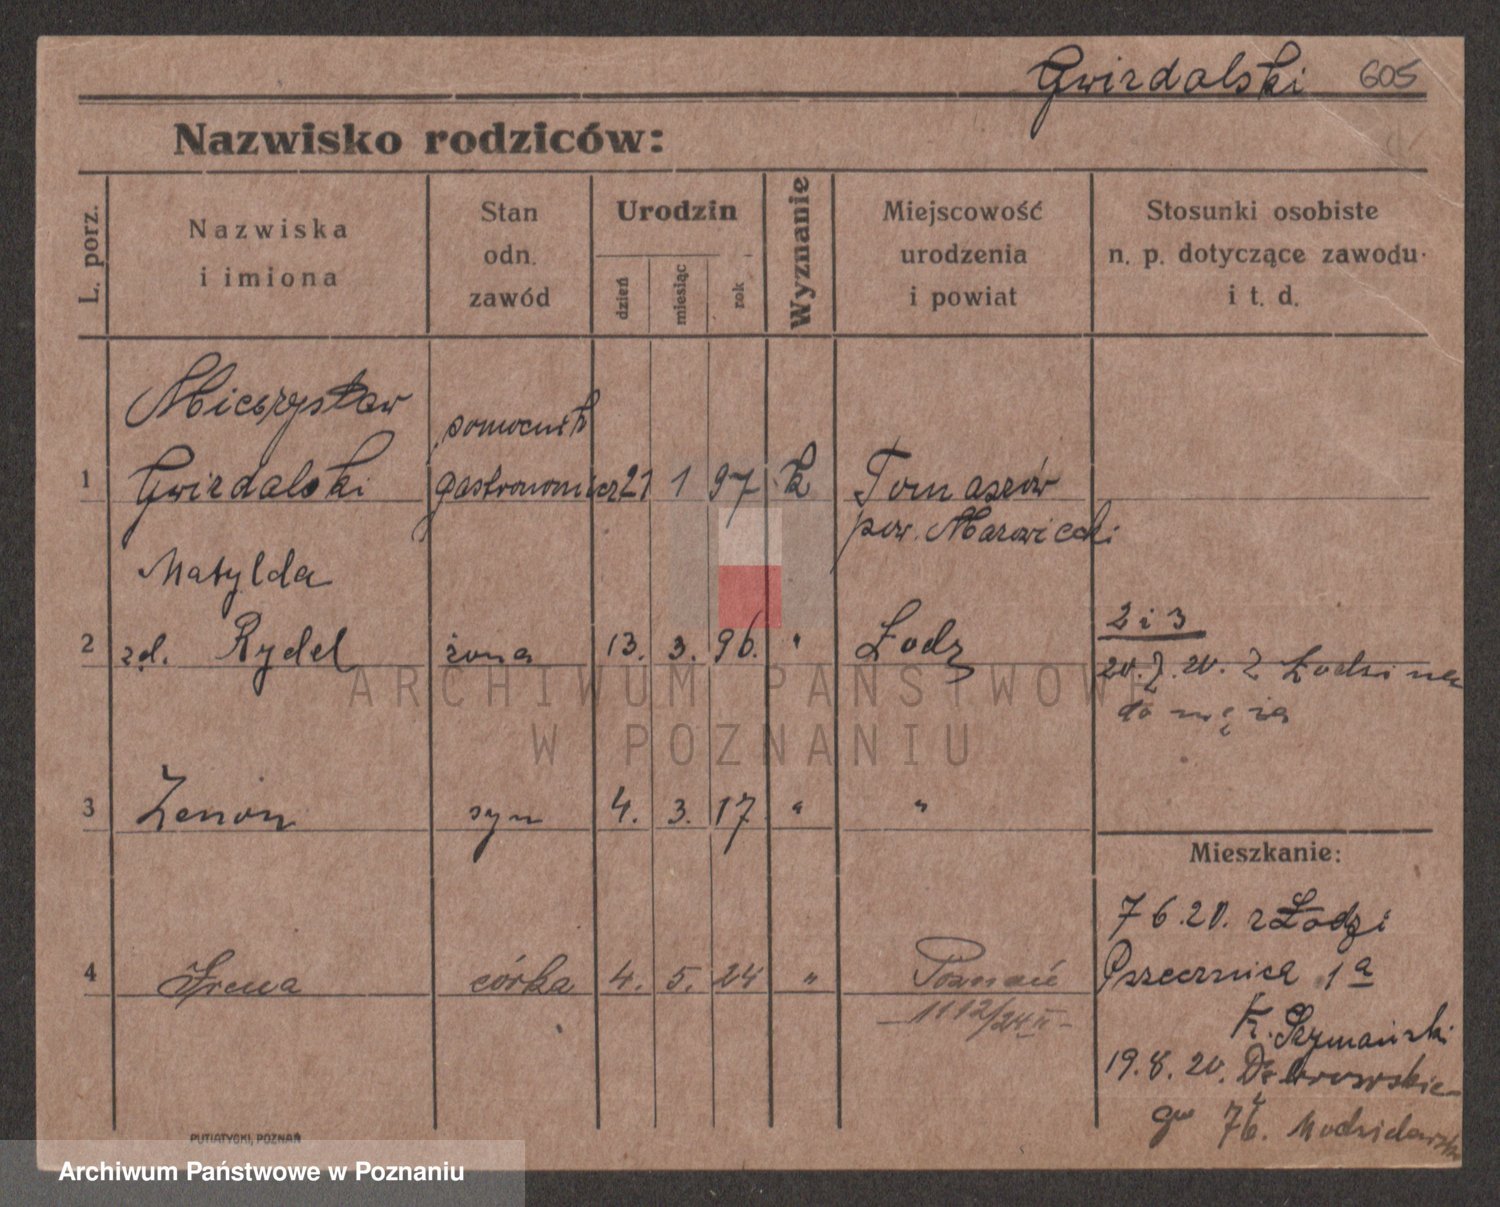 Gwizdalski 605
Nazwisko rodziców:
L. porz.
Nazwiska
i imiona
Stan
odn.
zawód
Urodzin
dzień
miesiąc
rok
Wyznanie
Miejscowość
urodzenia
i powiat
Stosunki osobiste
n. p. dotyczące zawodu
i t. d.
Mieczysław
pomocnik
1 Gwizdalski gastronomicz 21 1 97 k Tomaszów
pow. Mazowiecki
Matylda
2 i 3
2 zd. Rydel żona 13. 3. 96. " Łodz
20. 7. 20. z Łodzi na
do męża
3 Zenon syn 4. 3. 17 " "
Mieszkanie:
7 6. 20. z Łodzi
4 Irena córka 4. 5. 24 " Poznań
Pszczelnica 1 a
1112/24 II
Fr. Szymański
19. 8. 20. Dąbrowskie-
go 76.
PUTIATYCKI, POZNAŃ
ARCHIWUM PAŃSTWOWE
W POZNANIU
Archiwum Państwowe w Poznaniu